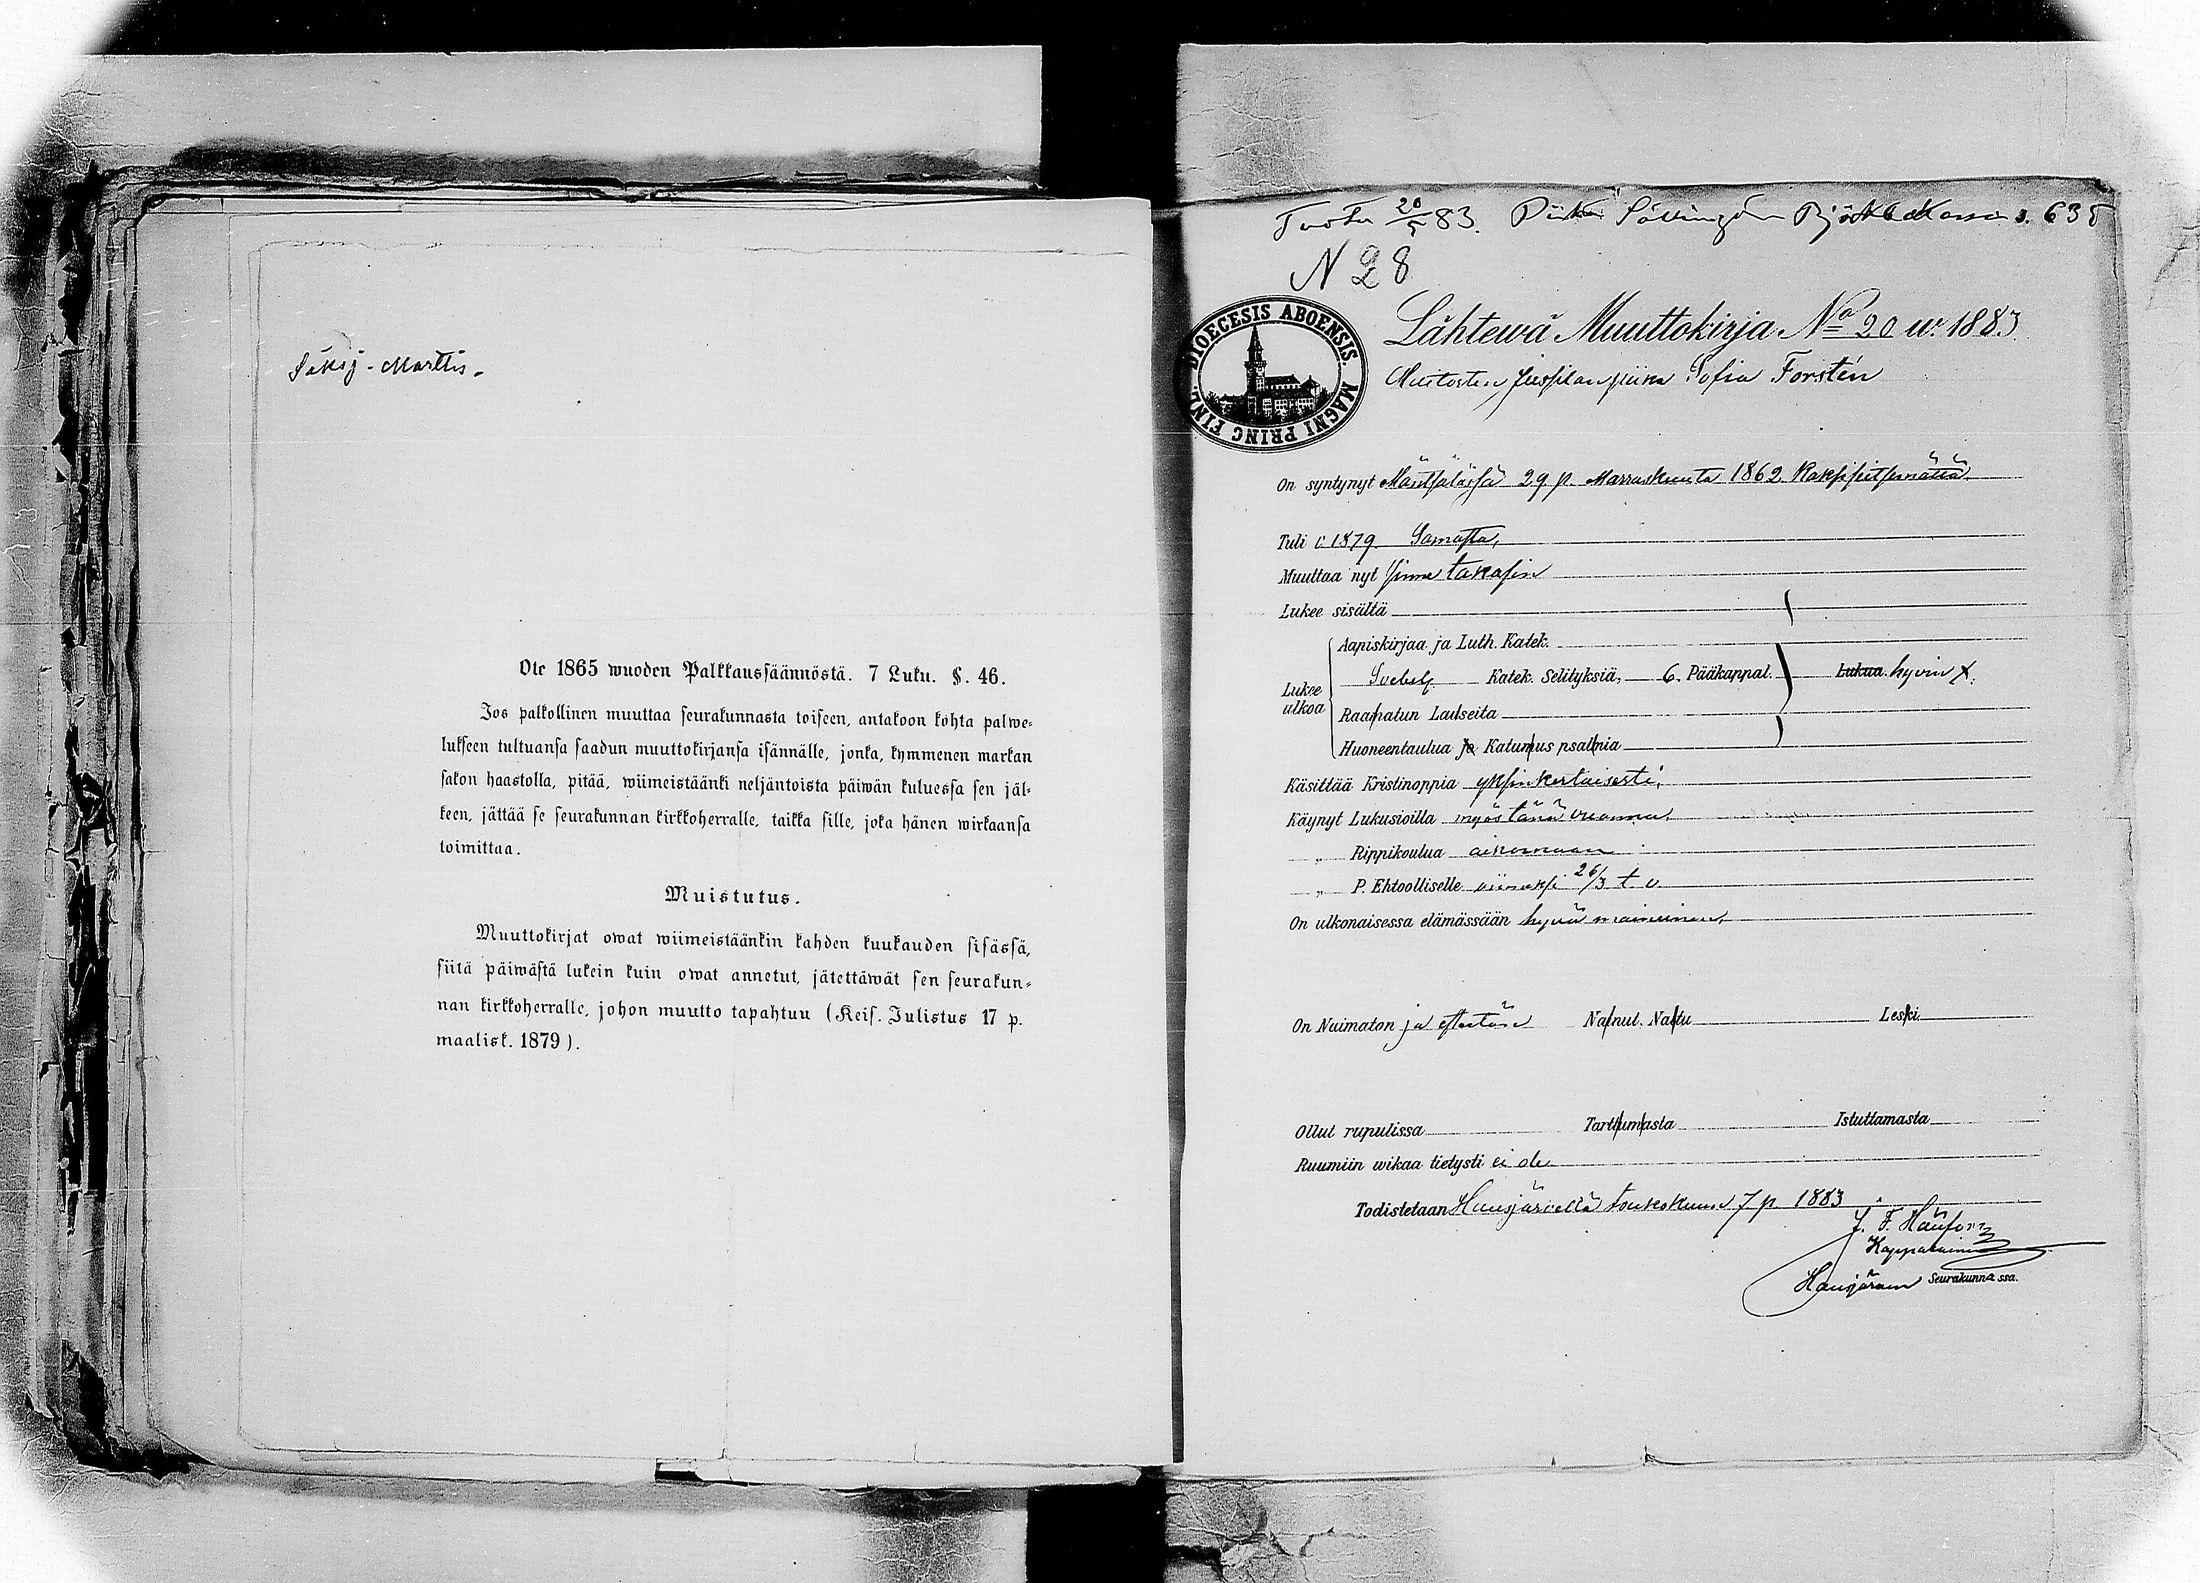 Säksj - Marttis -
Ote 1865 wuoden Palkkaussäännöstä. 7 Luku. §. 46.
Jos palkollinen muuttaa seurakunnasta toiseen, antakoon kohta palwe-
lukseen tultuansa saadun muuttokirjansa isännälle, jonka, kymmenen markan
sakon haastolla, pitää, wiimeistäänki neljäntoista päiwän kuluessa sen jäl-
keen, jättää se seurakunnan kirkkoherralle, taikka sille, joka hänen wirkaansa
toimittaa.
Muistutus.
Muuttokirjat owat wiimeistäänkin kahden kuukauden sisässä,
siitä päiwästä lukein kuin owat annetut, jätettäwät sen seurakun-
nan kirkkoherralle, johon muutto tapahtuu (Keis. Julistus 17 p.
maalisk. 1879).
Tuotu 20/5 83. Piika s. 635
N 28
DIOECESIS ABOENSIS. MAGNI PRINC FINL.
Lähtewä Muuttokirja No 20 w. 1883
piika Sofia Forstén
On syntynyt Mäntsälässä 29 p. Marraskuuta 1862
Tuli v. 1879. Samasta,
Muuttaa nyt sinne takasin
Lukee sisältä
Aapiskirjaa ja Luth. Katek.
Lukee ulkoa
Svebel. Katek. Selityksiä, 6. Pääkappal. Lukua. hyvin X.
Raamatun Lauseita
Huoneentaulua ja Katumus psalmia
Käsittää Kristinoppia yksinkertaisesti,
Käynyt Lukusioilla myös tänä vuonna.
„ Rippikoulua aikonaan
„ P. Ehtoolliselle viimeksi 26/3 t. v.
On ulkonaisessa elämässään hyvä maineinen,
On Naimaton ja esteetön Nainut. Naitu Leski.
Ollut rupulissa Tarttumasta Istuttamasta
Ruumiin wikaa tietysti ei ole
Todistetaan Hausjärvellä toukokuun 7 p. 1883
J. F.
Kappalainen
Hausjärven Seurakunnassa.